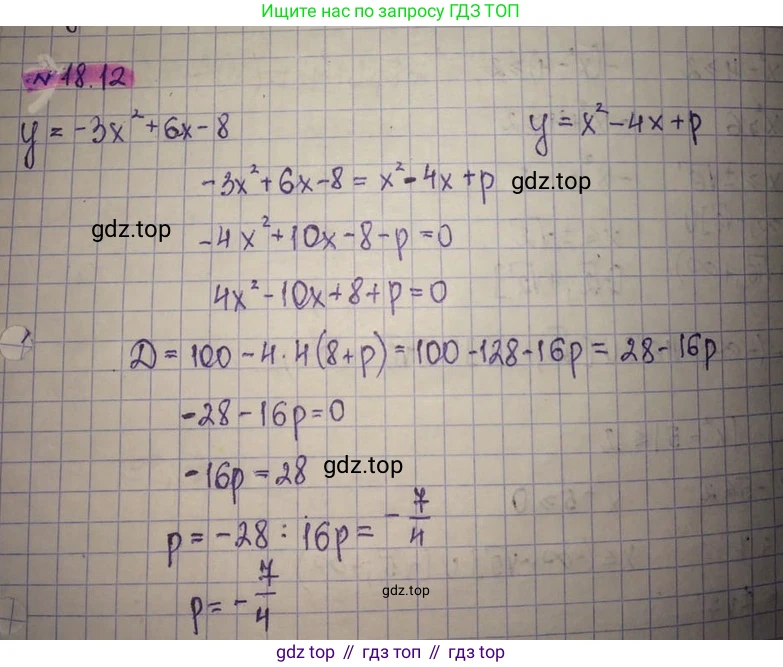 Ищите нас по запросу ГДЗ ТОП
№ 18.12
y = -3x² + 6x - 8 y = x² - 4x + p
-3x² + 6x - 8 = x² - 4x + p gdz.top
gdz.top -4x² + 10x - 8 - p = 0
4x² - 10x + 8 + p = 0
D = 100 - 4 · 4(8 + p) = 100 - 128 - 16p = 28 - 16p
-28 - 16p = 0
-16p = 28 gdz.top
p = -28 : 16p = -7/4
p = -7/4 gdz.top
gdz.top // гдз топ // гдз.топ